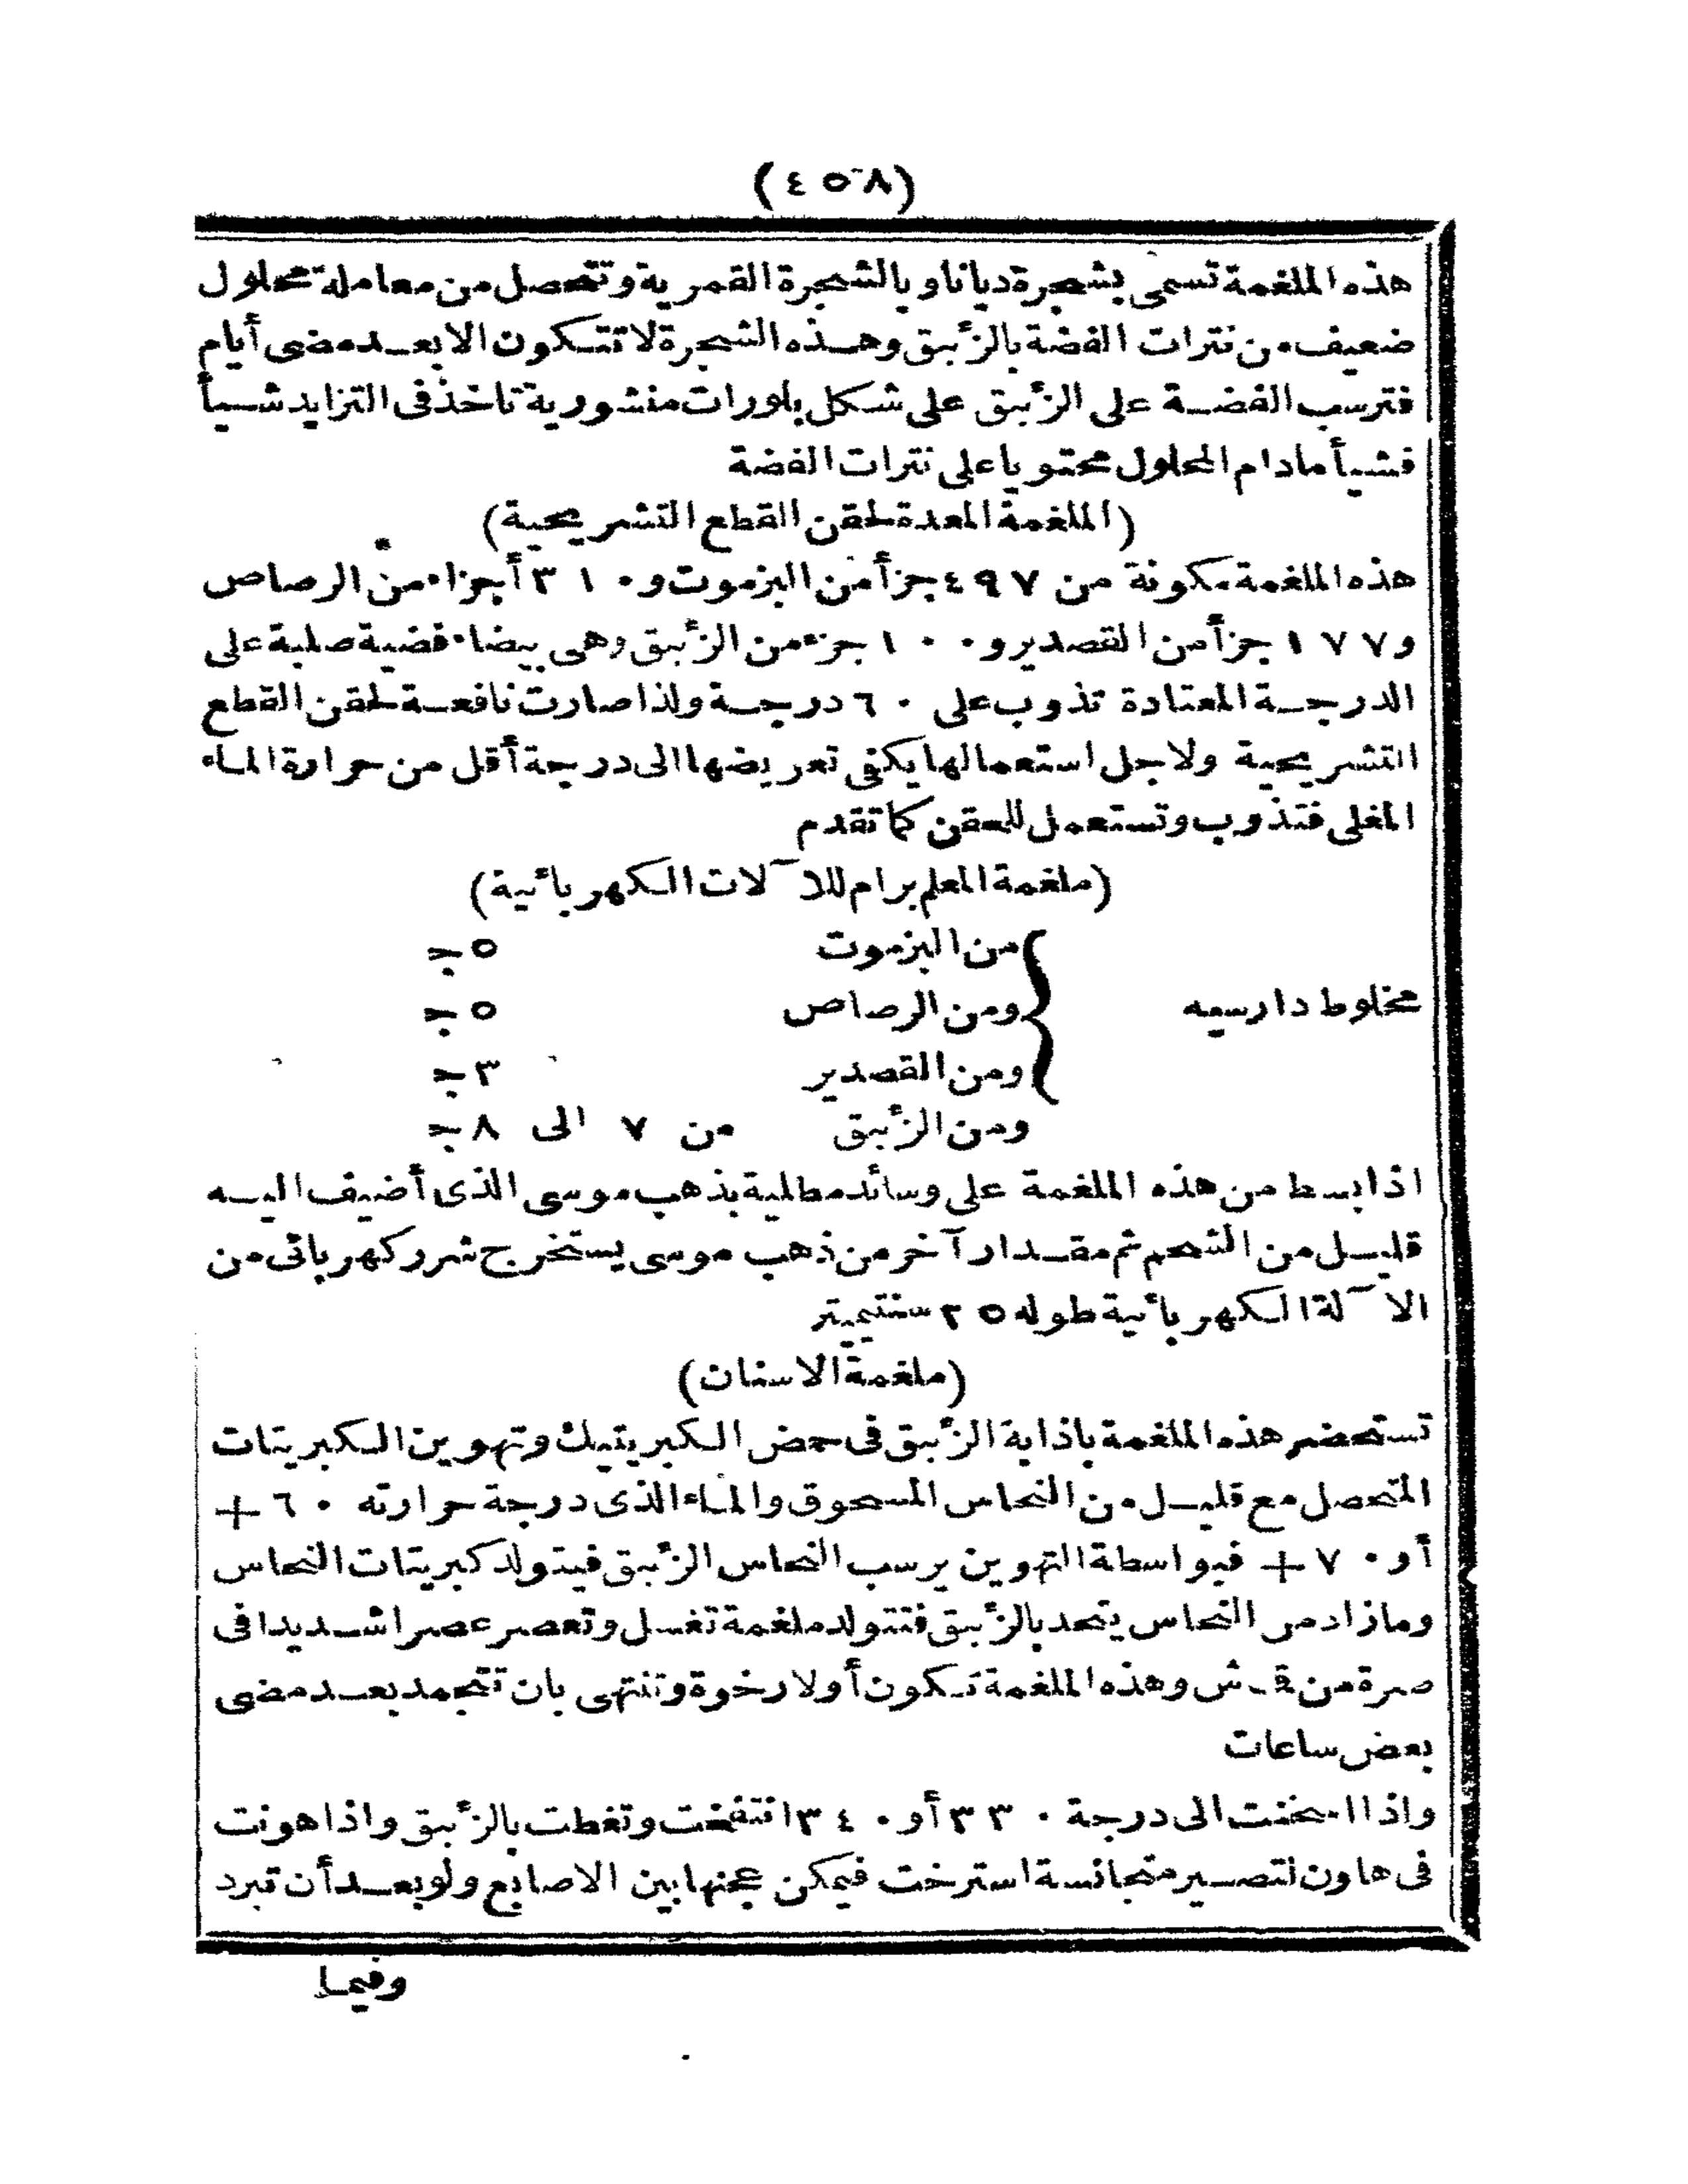 (٤٥٨)
هذه الملغمة تسمى بشجرة ديانا و بالشجرة القمرية وتتحصل من معاملة محلول
ضعيف من نترات الفضة بالزئبق وهذه الشجرة لا تتكون الا بعد مضى أيام
فترسب الفضة على الزئبق على شكل بلورات منشورية تاخذ فى التزايد شيأ
فشيأ مادام المحلول محتويا على نترات الفضة
(الملغمة المعدة لحقن القطع التشريحية)
هذه الملغمة مكونة من ٤٩٧ جزأ من البزموت و ٣١٠ أجزاء من الرصاص
و ١٧٧ جزأ من القصدير و ١٠٠ جزء من الزئبق وهى بيضاء فضية صلبة على
الدرجة المعتادة تذوب على ٦٠ درجة ولذا صارت نافعة لحقن القطع
التشريحية ولاجل استعمالها يكفى تعريضها الى درجة أقل من حرارة الماء
المغلى فتذوب وتستعمل للحقن كما تقدم
(ملغمة المعلم برام للآلات الكهربائية)
من البزموت ٥ جـ
مخلوط دارسيه ومن الرصاص ٥ جـ
ومن القصدير ٣ جـ
ومن الزئبق من ٧ الى ٨ جـ
اذا بسط من هذه الملغمة على وسائد مطلية بذهب موسى الذى أضيف اليه
قليل من الشحم ثم مقدار آخر من ذهب موسى يستخرج شرر كهربائى من
الآلة الكهربائية طوله ٢٥ سنتيميتر
(ملغمة الاسنان)
تستحضر هذه الملغمة باذابة الزئبق فى حمض الكبريتيك وتهوين الكبريتات
المتحصل مع قليل من النحاس المسحوق والماء الذى درجة حرارته ٦٠ +
أو ٧٠ + فبواسطة التهوين يرسب النحاس الزئبق فيتولد كبريتات النحاس
وما زاد من النحاس يتحد بالزئبق فتتولد ملغمة تغسل وتعصر عصرا شديدا فى
صرة من قماش وهذه الملغمة تكون أولا رخوة وتنتهى بان تتجمد بعد مضى
بعض ساعات
واذا سخنت الى درجة ٣٣٠ أو ٣٤٠ انتفخت وتغطت بالزئبق واذا هونت
فى هاون لتصير متجانسة استرخت فيمكن عجنها بين الاصابع ولو بعد أن تبرد
وفيما